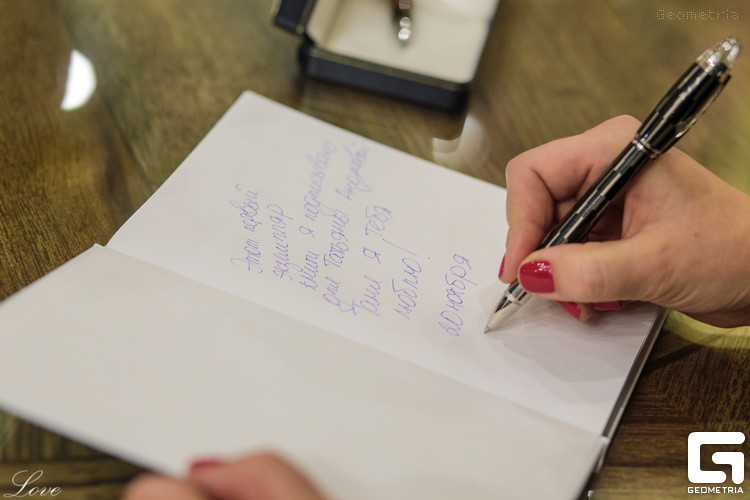 Geometria
Этот первый
экземпляр
книги я подписываю
для Татьяны
Таня я тебя
люблю!
20 ноября
Love
GEOMETRIA